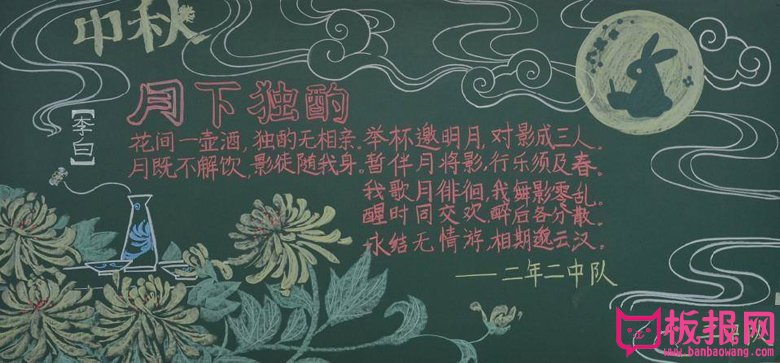 中秋
月下独酌
【李白】
花间一壶酒,独酌无相亲.举杯邀明月,对影成三人.
月既不解饮,影徒随我身.暂伴月将影,行乐须及春.
我歌月徘徊,我舞影零乱.
醒时同交欢,醉后各分散.
永结无情游,相期邈云汉.
——二年二中队
板报网
www.banbaowang.com